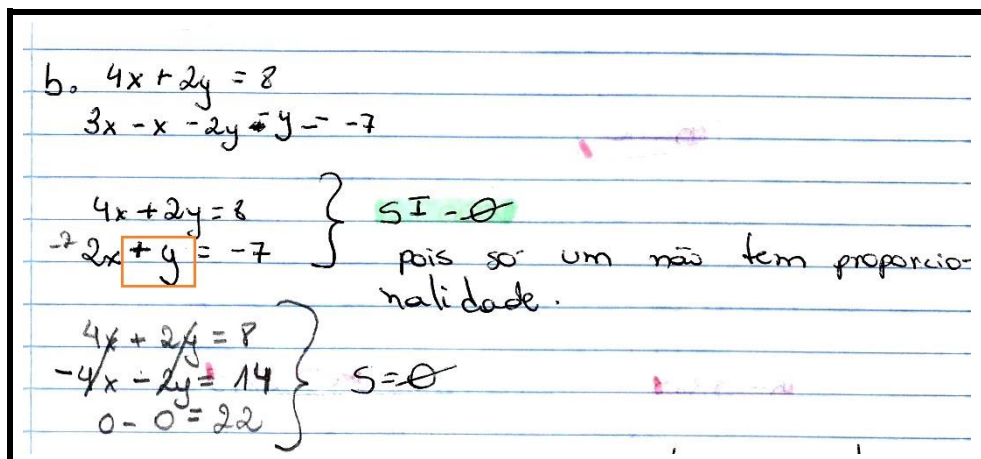 b. 4x + 2y = 8
3x - x - 2y - y = -7
4x + 2y = 8
-2 2x + y = -7
SI - ∅
pois só um não tem proporcio-
nalidade.
4x + 2y = 8
-4x - 2y = 14
0 - 0 = 22
S = ∅